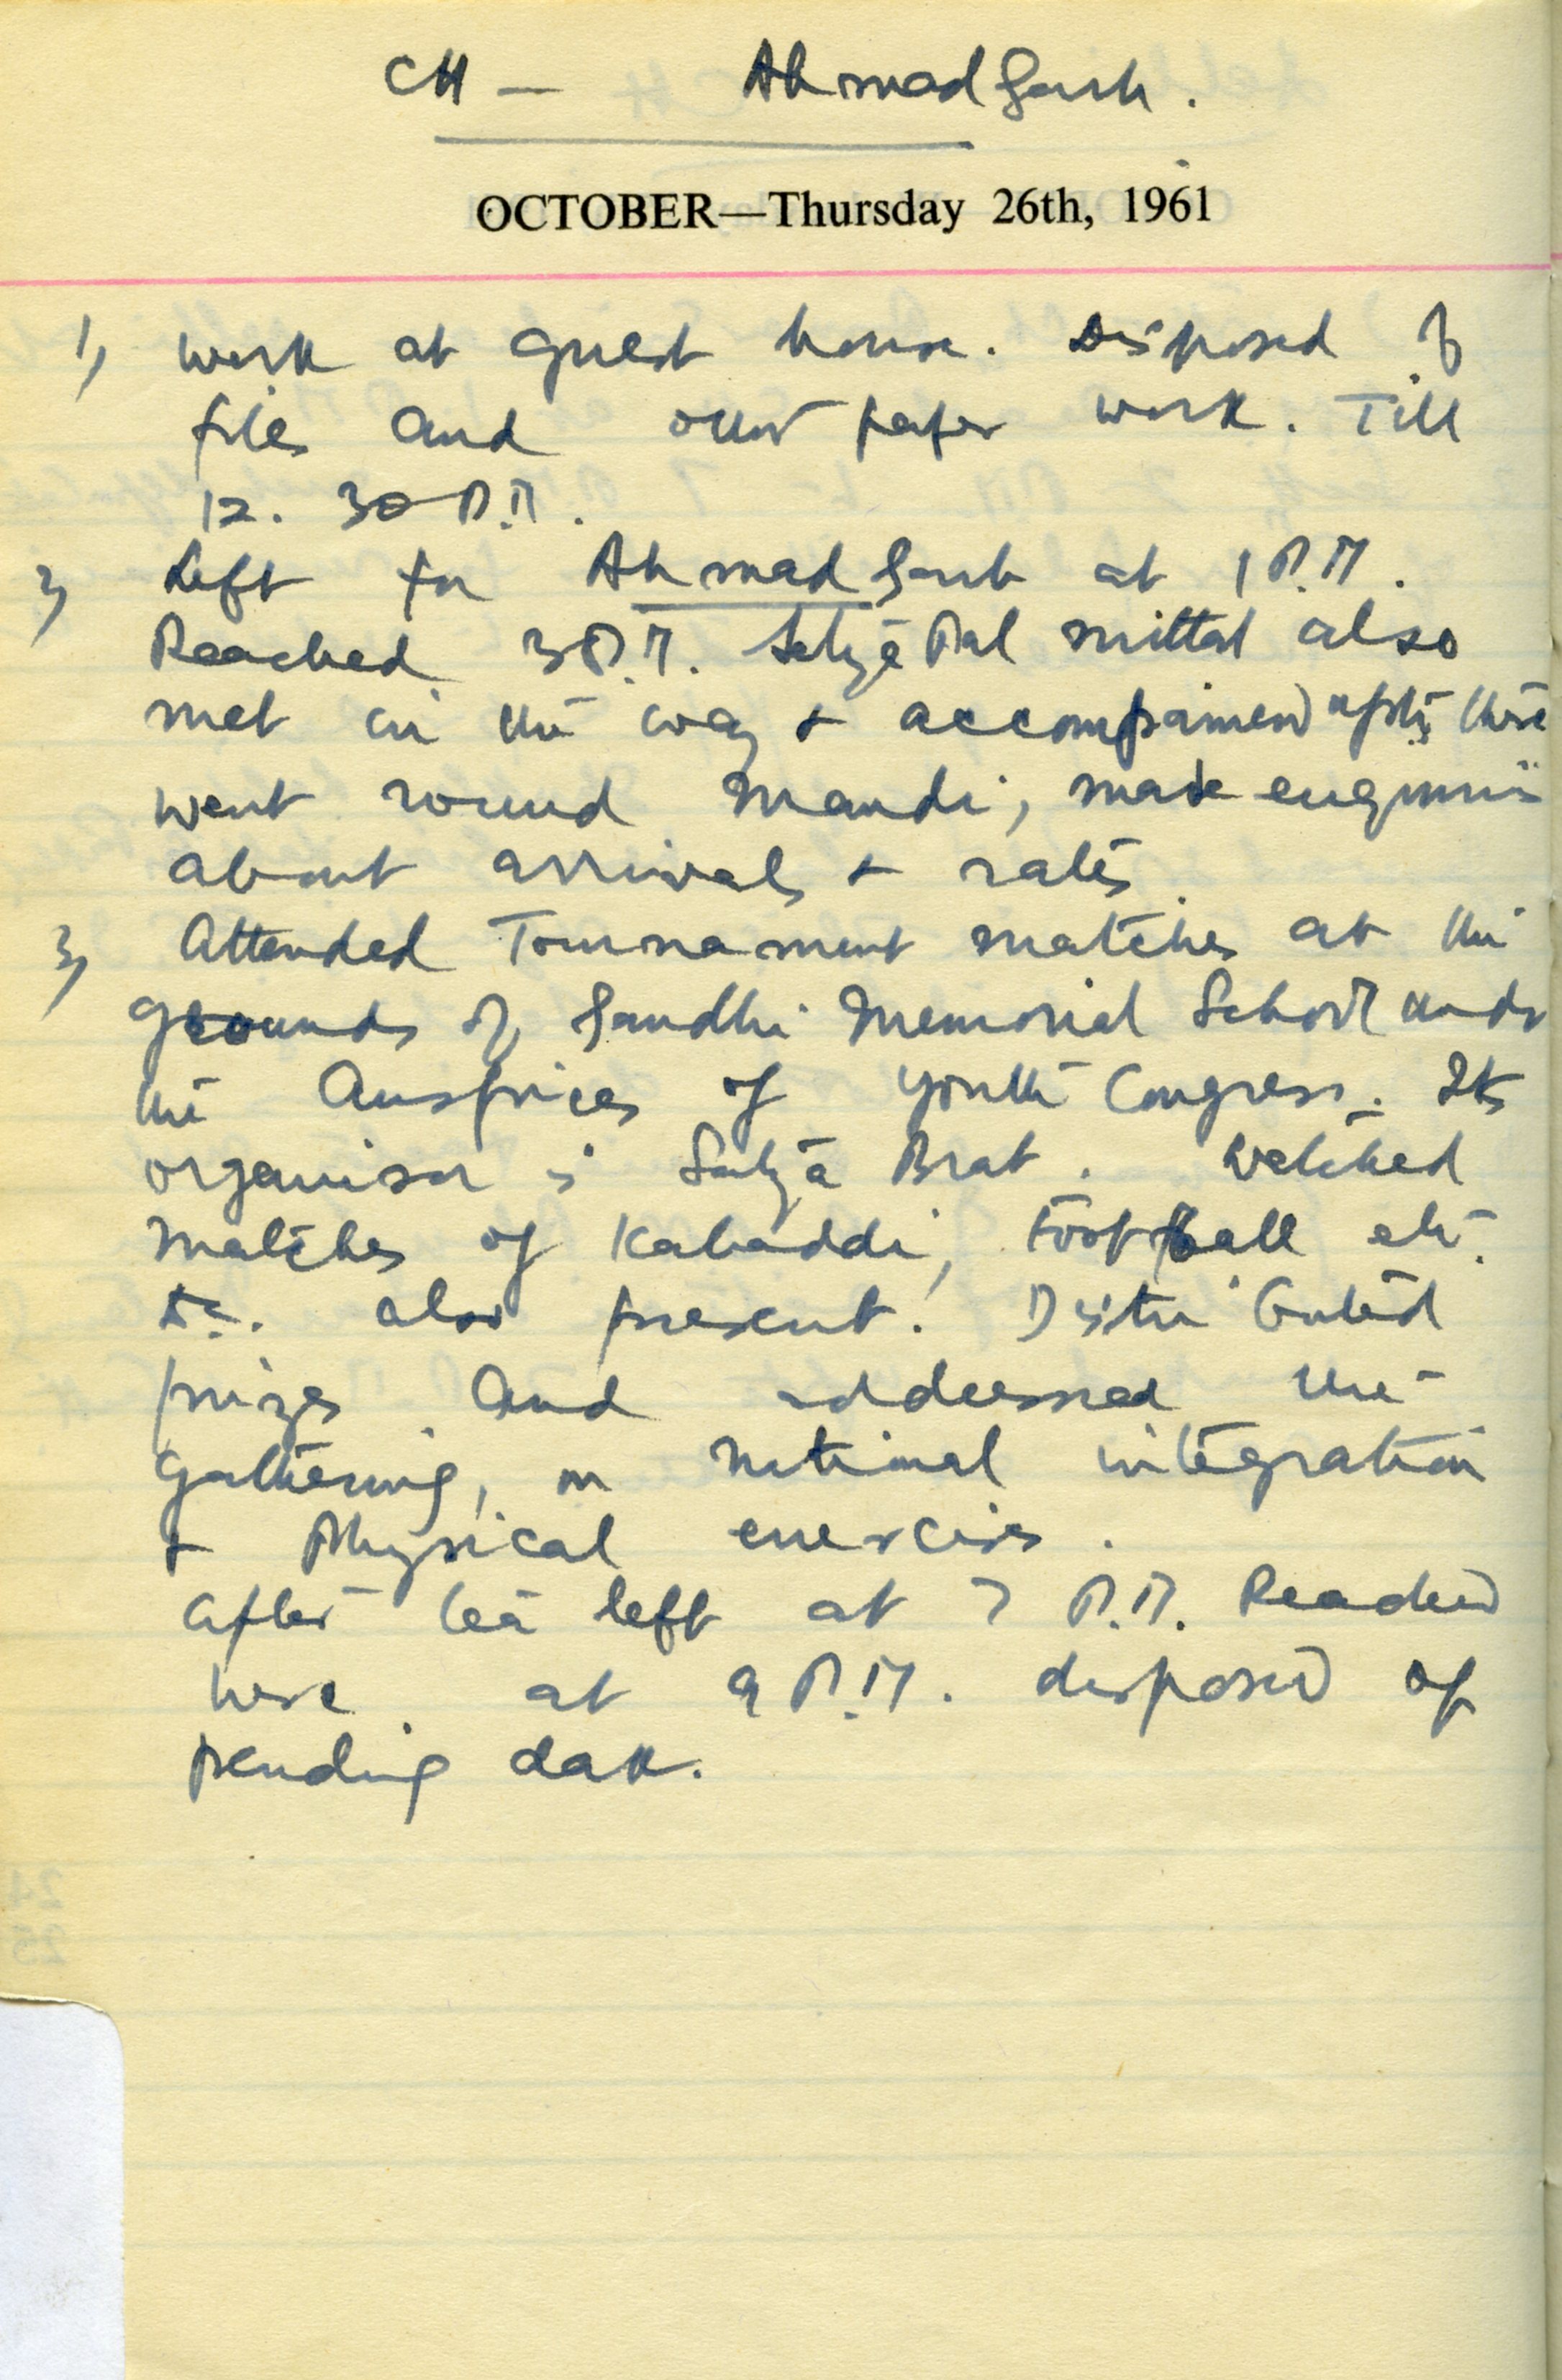 CH — Ahmadgarh.
OCTOBER—Thursday 26th, 1961
1) Work at guest house. Disposed of
files and other paper work. Till
12. 30 P.M.
2) Left for Ahmadgarh at 1 P.M.
Reached 3 P.M. Satya Pal Mittal also
met on the way & accompanied upto there
went round Mandi, made enquiries
about arrivals & rates
3) Attended Tournament matches at the
grounds of Gandhi Memorial School under
the Auspices of Youth Congress. Its
organiser is Satya Brat. Watched
matches of Kabaddi, Football etc.
also present. Distributed
prizes and addressed the
gathering, on national integration
& Physical exercises.
After tea left at 7 P.M. Reached
here at 9 P.M. disposed of
pending dak.